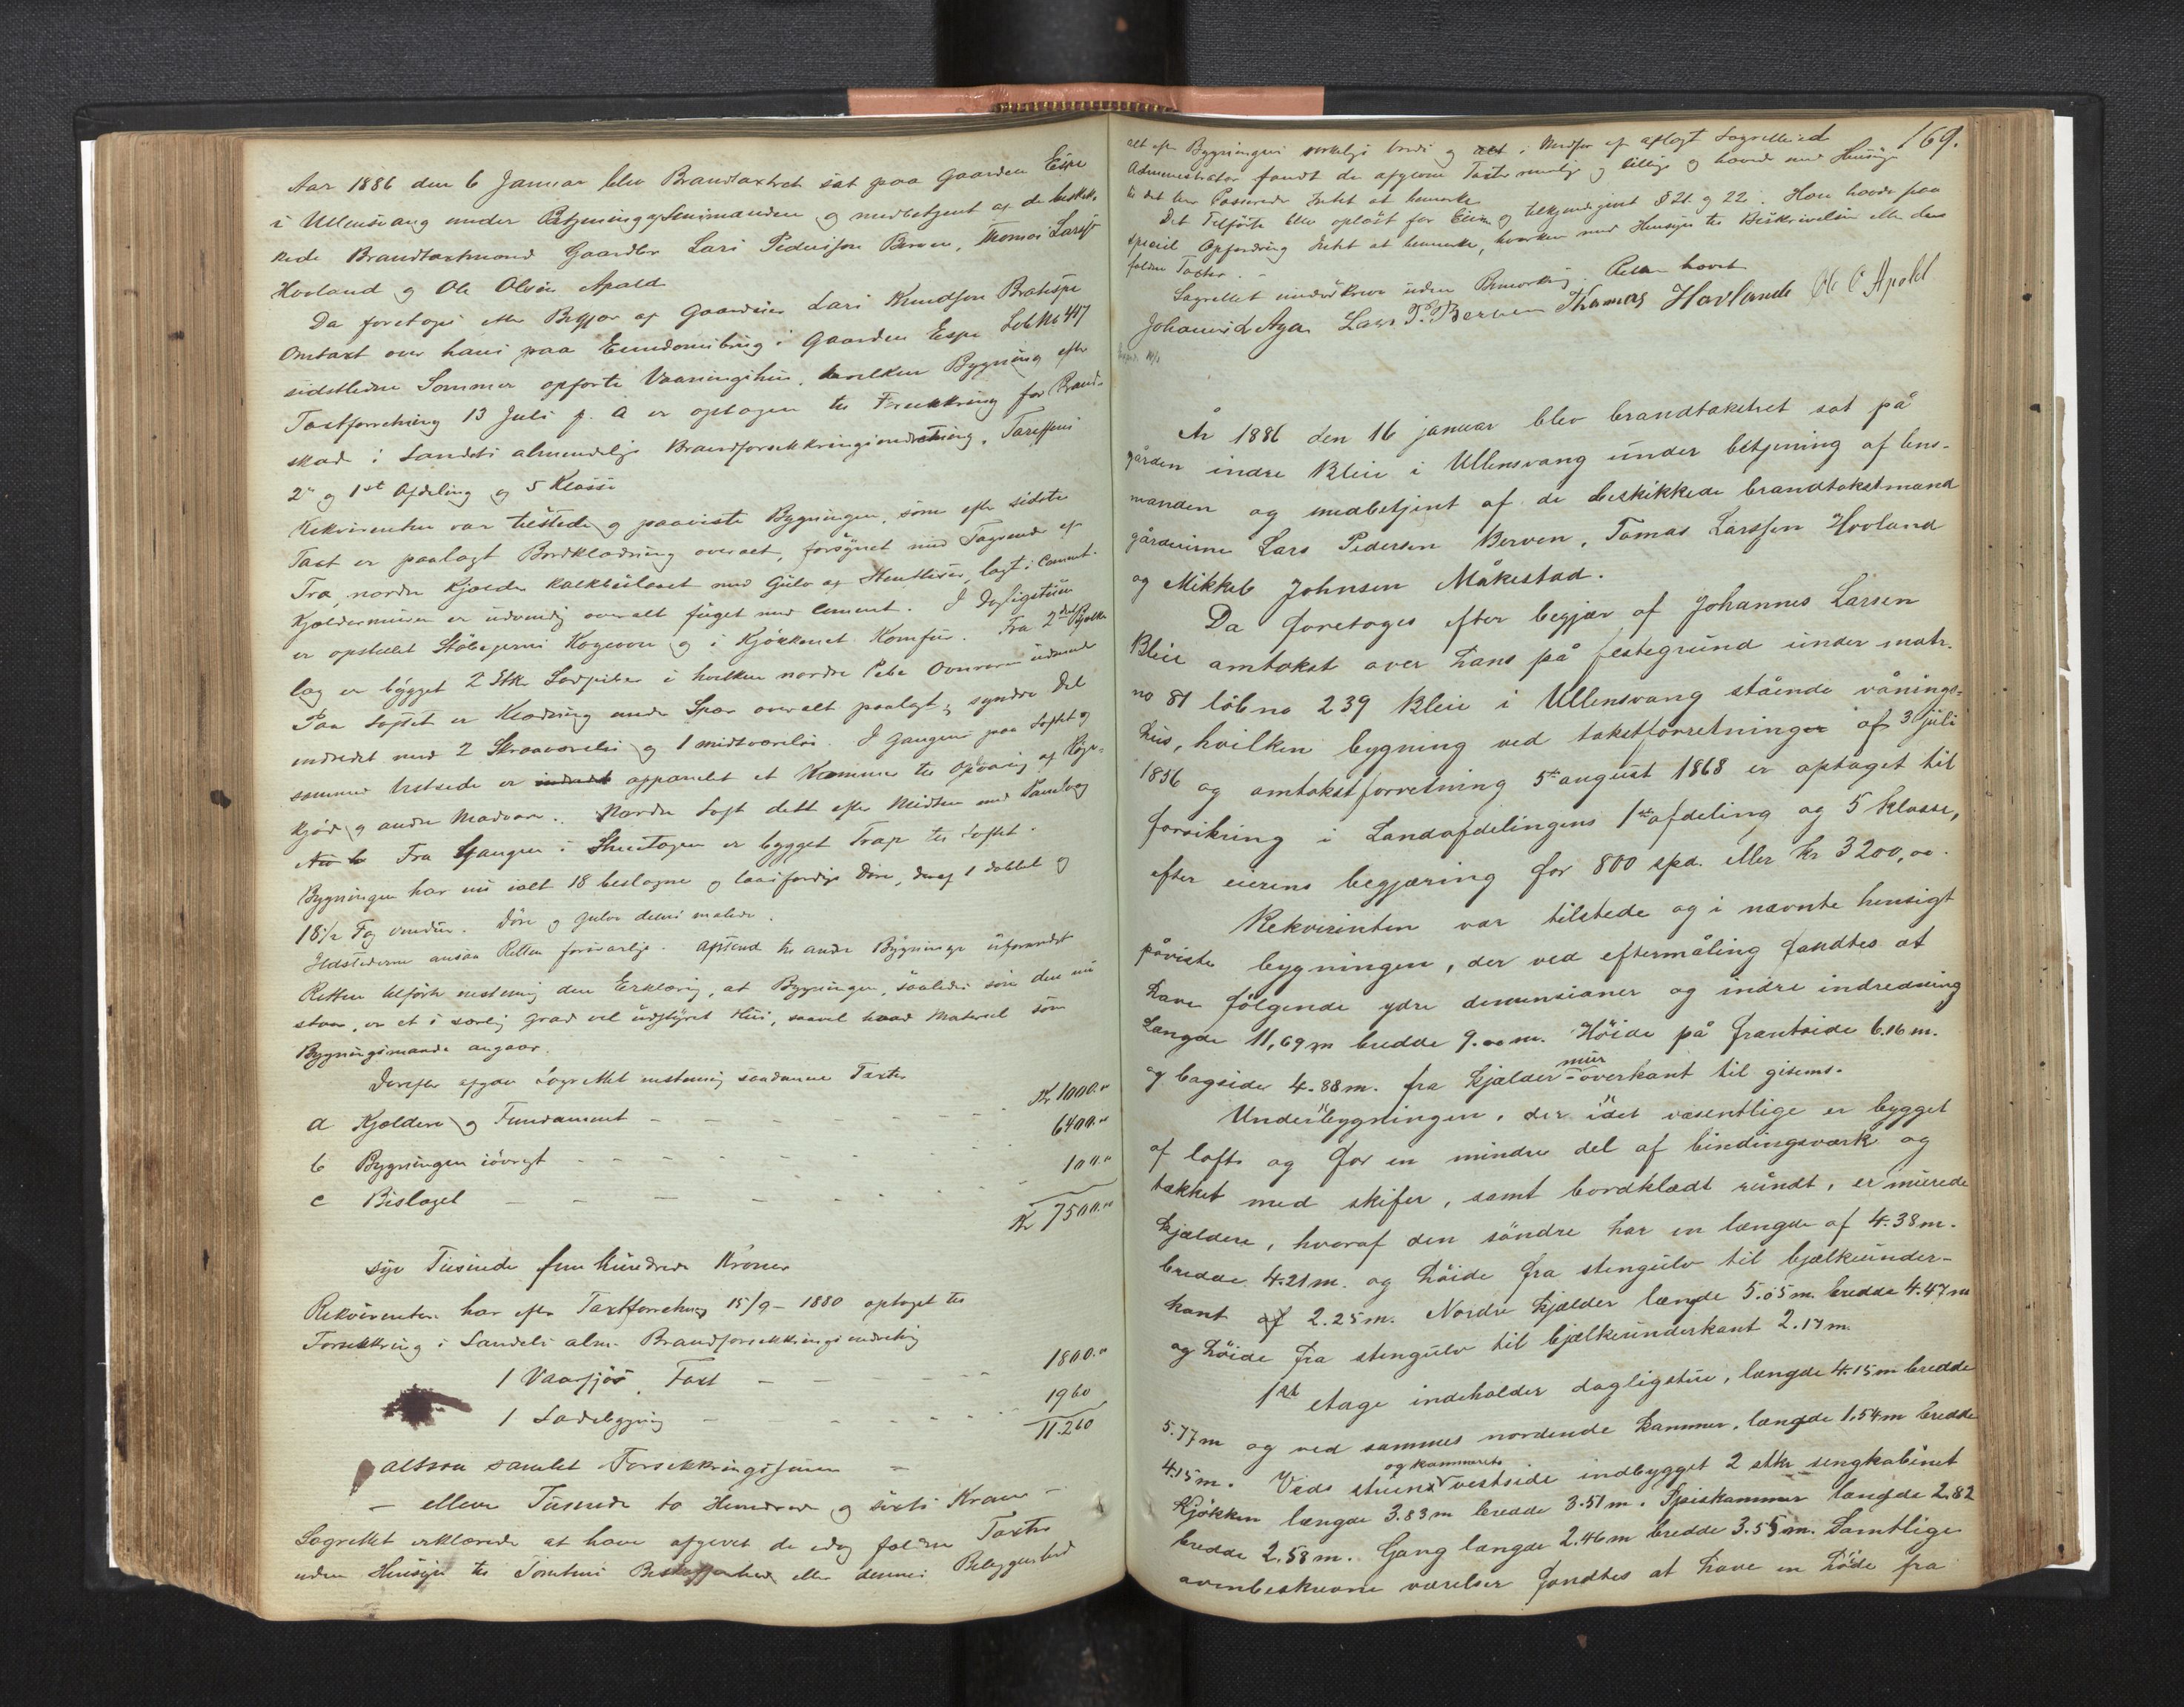 Aar 1886 den 6 Januar blev Brandtaxtret sat paa Gaarden Espe
i Ullensvang under Betjening af Lensmanden og medbetjent af de beskik-
kede Brandtaxtmænd Gaardbr Lars Pedersen Berven, Thomas Larss.
Hovland og Ole Olsen Apald
Da foretoges efter Begjær af Gaardeier Lars Knudsen Bratespe
Omtaxt over hans paa Eiendomsbrug i Gaarden Espe Løb No 417
sidstleden Sommer opførte Vaaningshus, hvilken Bygning efter
Taxtforretning 13 Juli f. A er optagen til Forsikkring for Brand-
skade i Landets almindelige Brandforsikkringsindretning, Tariffens
2 og 1st Afdeling og 5 Klasse
Rekvirenten var tilstede og paaviste Bygningen, som efter sidste
Taxt er paalagt Bordklædning overalt, forsynet med Tagrende af
Træ, nordre Kjælder kalkpudset med Gulv af Stenfliser, lagt i Cement.
Kjældermuren er udvendig overalt fuget med Cement. I Dagligstuen
er opstillet Støbejerns Kogeovn og i Kjøkkenet Komfur. Fra 2det Bjælke
lag er bygget 2 Stk Lodpiber i hvilken nordre Pibe
Paa Loftet er Klædning under Spær overalt paalagt, søndre Del
indredet med 2 Skraaværelser og 1 midtværelse. I Gangen paa Loftet og
sammes Vestside er apparelet et Kammer til Opvaring af Røge-
kjød og andre Madvare. Nordre Loft delt efter Midten med Panelvæg
Fra Gangen i Etagen er bygget Trap til Loftet.
Bygningen har nu ialt 18 beslagne og laasfærdige Døre, deraf 1 dobbel og
18½ Fag Vinduer. Døre og Gulve delvis malede.
Ildstederne ansaa Retten forsvarlige. Afstand til andre Bygninger uforandret
Retten tilførte enstemmig den Erklæring, at Bygningen, saaledes som den nu
staar, er et i særlig Grad vel udstyret Hus, saavel hvad Materiel som
Bygningsmaade angaar.
Derefter afgav Lagrettet enstemmig saadanne Taxter
a Kjældere og Fundament - - - Kr 1000.00
b Bygningen iøvrigt - - - 6400.00
c Bislaget - - - 100.00
Kr 7500.00
syv Tusinde fem hundrede Kroner
Rekvirenten har efter Taxtforretning 15/9 - 1880 optaget til
Forsikkring i Landets alm. Brandforsikkringsindretning
1 Taxt - - - 1800.00
1 Ladebygning - - - 1960
altsaa samlet Forsikkringssum - 11.260
- elleve Tusinde to Hundrede og sexti Kroner -
Lagrettet erklærede at have afgivet de idag faldne Taxter
uden Hensyn til Tomtens Beskaffenhed eller dennes Beliggenhed
169.
alt efter Bygningens virkelige Værdi og alt i Medfør af aflagt Lagrettesed
Administrator fandt de afgivne Taxter rimelige og billige og havde med Hensyn
til det her Passerede Intet at bemerke
Det Tilførte blev oplæst for Eieren og tilkjendegivet § 21 og 22. Han havde paa
speciel Opfordring Intet at bemerke, hverken med Hensyn til Beskrivelsen eller den
faldne Taxter. -
Lagrettet underskrev uden Bemærkning. Retten hævet
Johannes L Aga Lars P. Berven Thomas Havlande Ole O Apold
År 1886 den 16 januar blev brandtakstret sat på
gården indre Bleie i Ullensvang under betjening af lens-
manden og medbetjent af de beskikkede brandtakstmænd
gårdeierne Lars Pedersen Berven, Tomas Larssen Hovland
og Mikkel Johnsen Måkestad.
Da foretoges efter begjær af Johannes Larsen
Bleie omtakst over hans på festegrund under matr.
no 81 løbno 239 Bleie i Ullensvang stående vånings-
hus, hvilken bygning ved takstforretninger af 3 juli
1856 og omtakstforretning 5te august 1868 er optaget til
forsikring i Landafdelingens 1ste afdeling og 5 klasse,
efter eierens begjæring for 800 spd. eller kr 3200,00.
Rekvirenten var tilstede og i nævnte hensigt
påviste bygningen, der ved eftermåling fandtes at
have følgende ydre dimensioner og indre indredning
Længde 11,69 m bredde 9.00 m. Høide på frontside 6.16 m.
og bagside 4.88 m. fra kjælder mur -overkant til gisems.
Under bygningen, der i det væsentlige er bygget
af loft og for en mindre del af bindingsværk og
tækket med skifer, samt bordklædt rundt, er murede
kjældere, hvoraf den søndre har en længde af 4.38 m.
bredde 4.21 m. og høide fra stengulv til bjelkeunder-
kant af 2.25 m. Nordre kjælder længde 5.05 m. bredde 4.47 m
og høide fra stengulv til bjælkeunderkant 2.17 m.
1ste etage indeholder dagligstue, længde 4.15 m bredde
5.77 m og ved sammes nordende kammer, længde 1.54 m bredde
4.15 m. Veds stuens og kammerets vestside indbygget 2 stkr sengkabinet
Kjøkken længde 3.83 m bredde 3.51 m. Spiskammer længde 2.82
bredde 2.58 m. Gang længde 2.46 m bredde 3.55 m. Samtlige
ovenbeskrevne værelser fandtes at have en høide fra